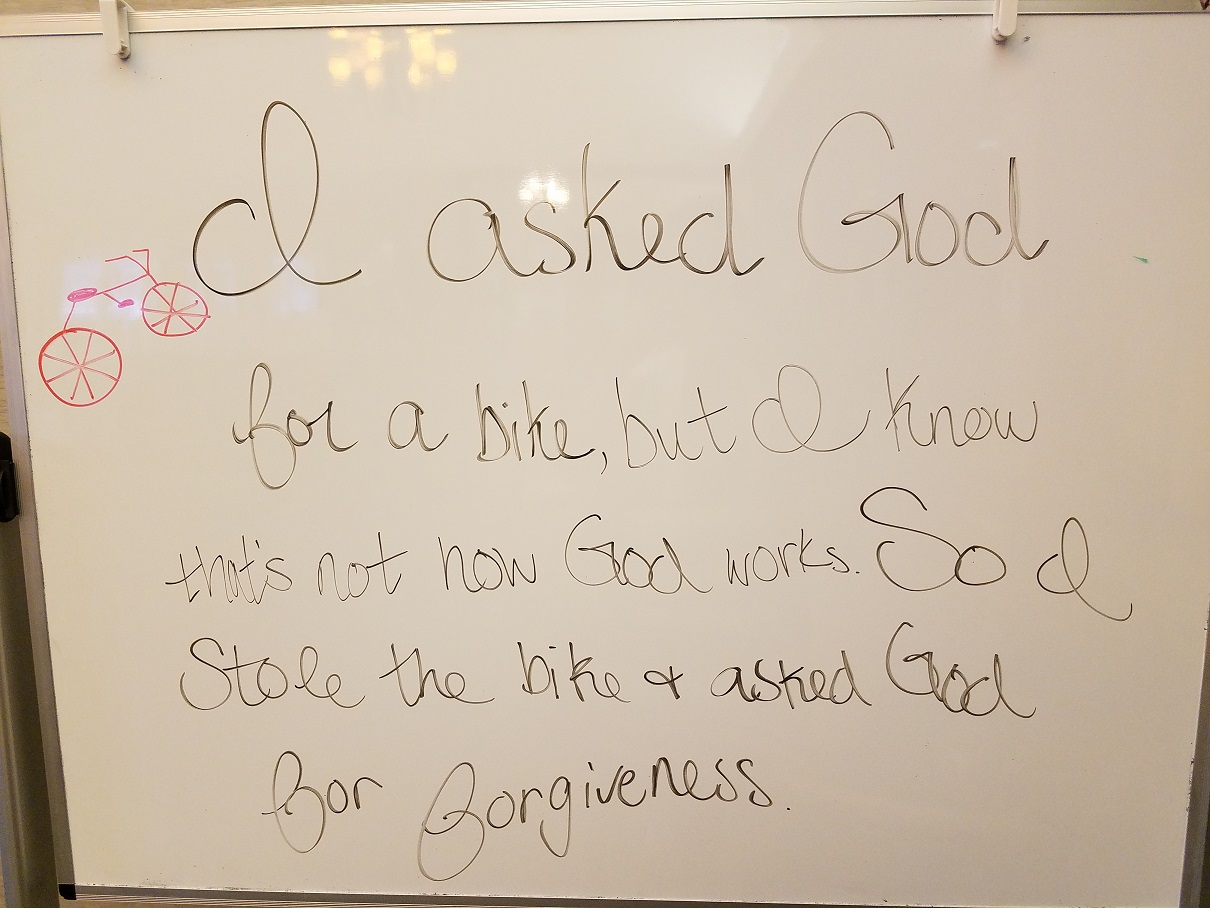 I asked God
for a bike, but I know
that's not how God works. So I
Stole the bike & asked God
for forgiveness.